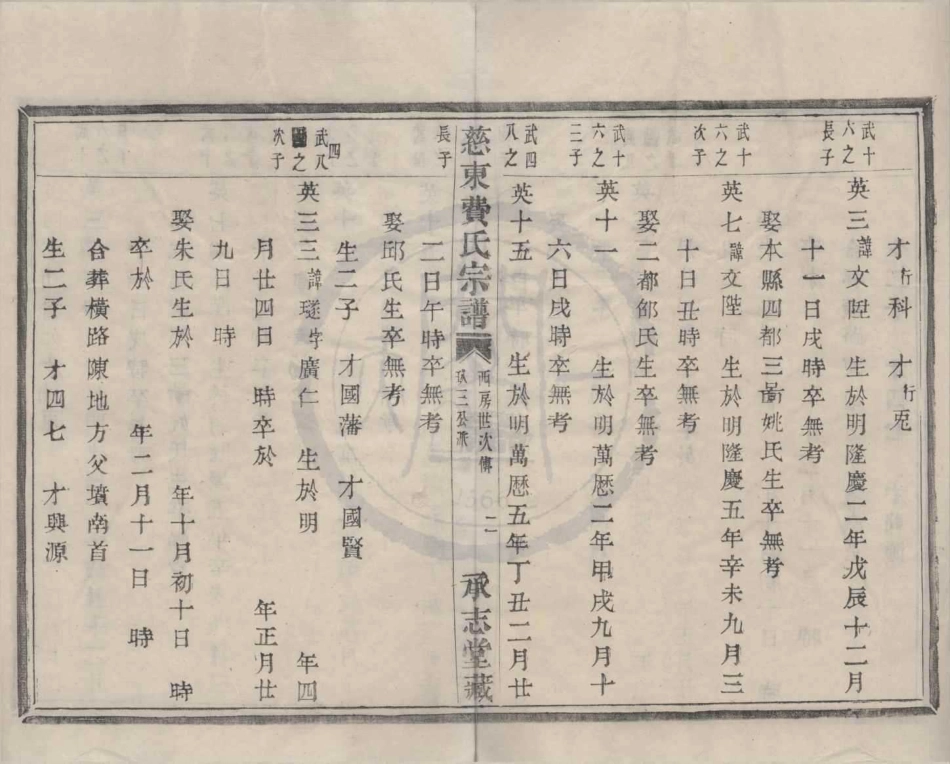 才行科 才行兎
武十六之長子
英三諱文陞 生於明隆慶二年戊辰十二月
十一日戌時卒無考
娶本縣四都三啚姚氏生卒無考
武十六之次子
英七諱文陛 生於明隆慶五年辛未九月三
十日丑時卒無考
娶二都邰氏生卒無考
武十六之三子
英十一 生於明萬歷二年甲戌九月十
六日戌時卒無考
武四八之長子
英十五 生於明萬歷五年丁丑二月廿
二日午時卒無考
慈東費氏宗譜 西房世次傳 二 承志堂藏
娶邱氏生卒無考
生二子 才國藩 才國賢
武八四之次子
英三三諱璲字廣仁 生於明 年四
月廿四日 時卒於 年正月廿
九日 時
娶朱氏生於 年十月初十日 時
卒於 年二月十一日 時
合葬橫路陳地方父墳南首
生二子 才四七 才興源